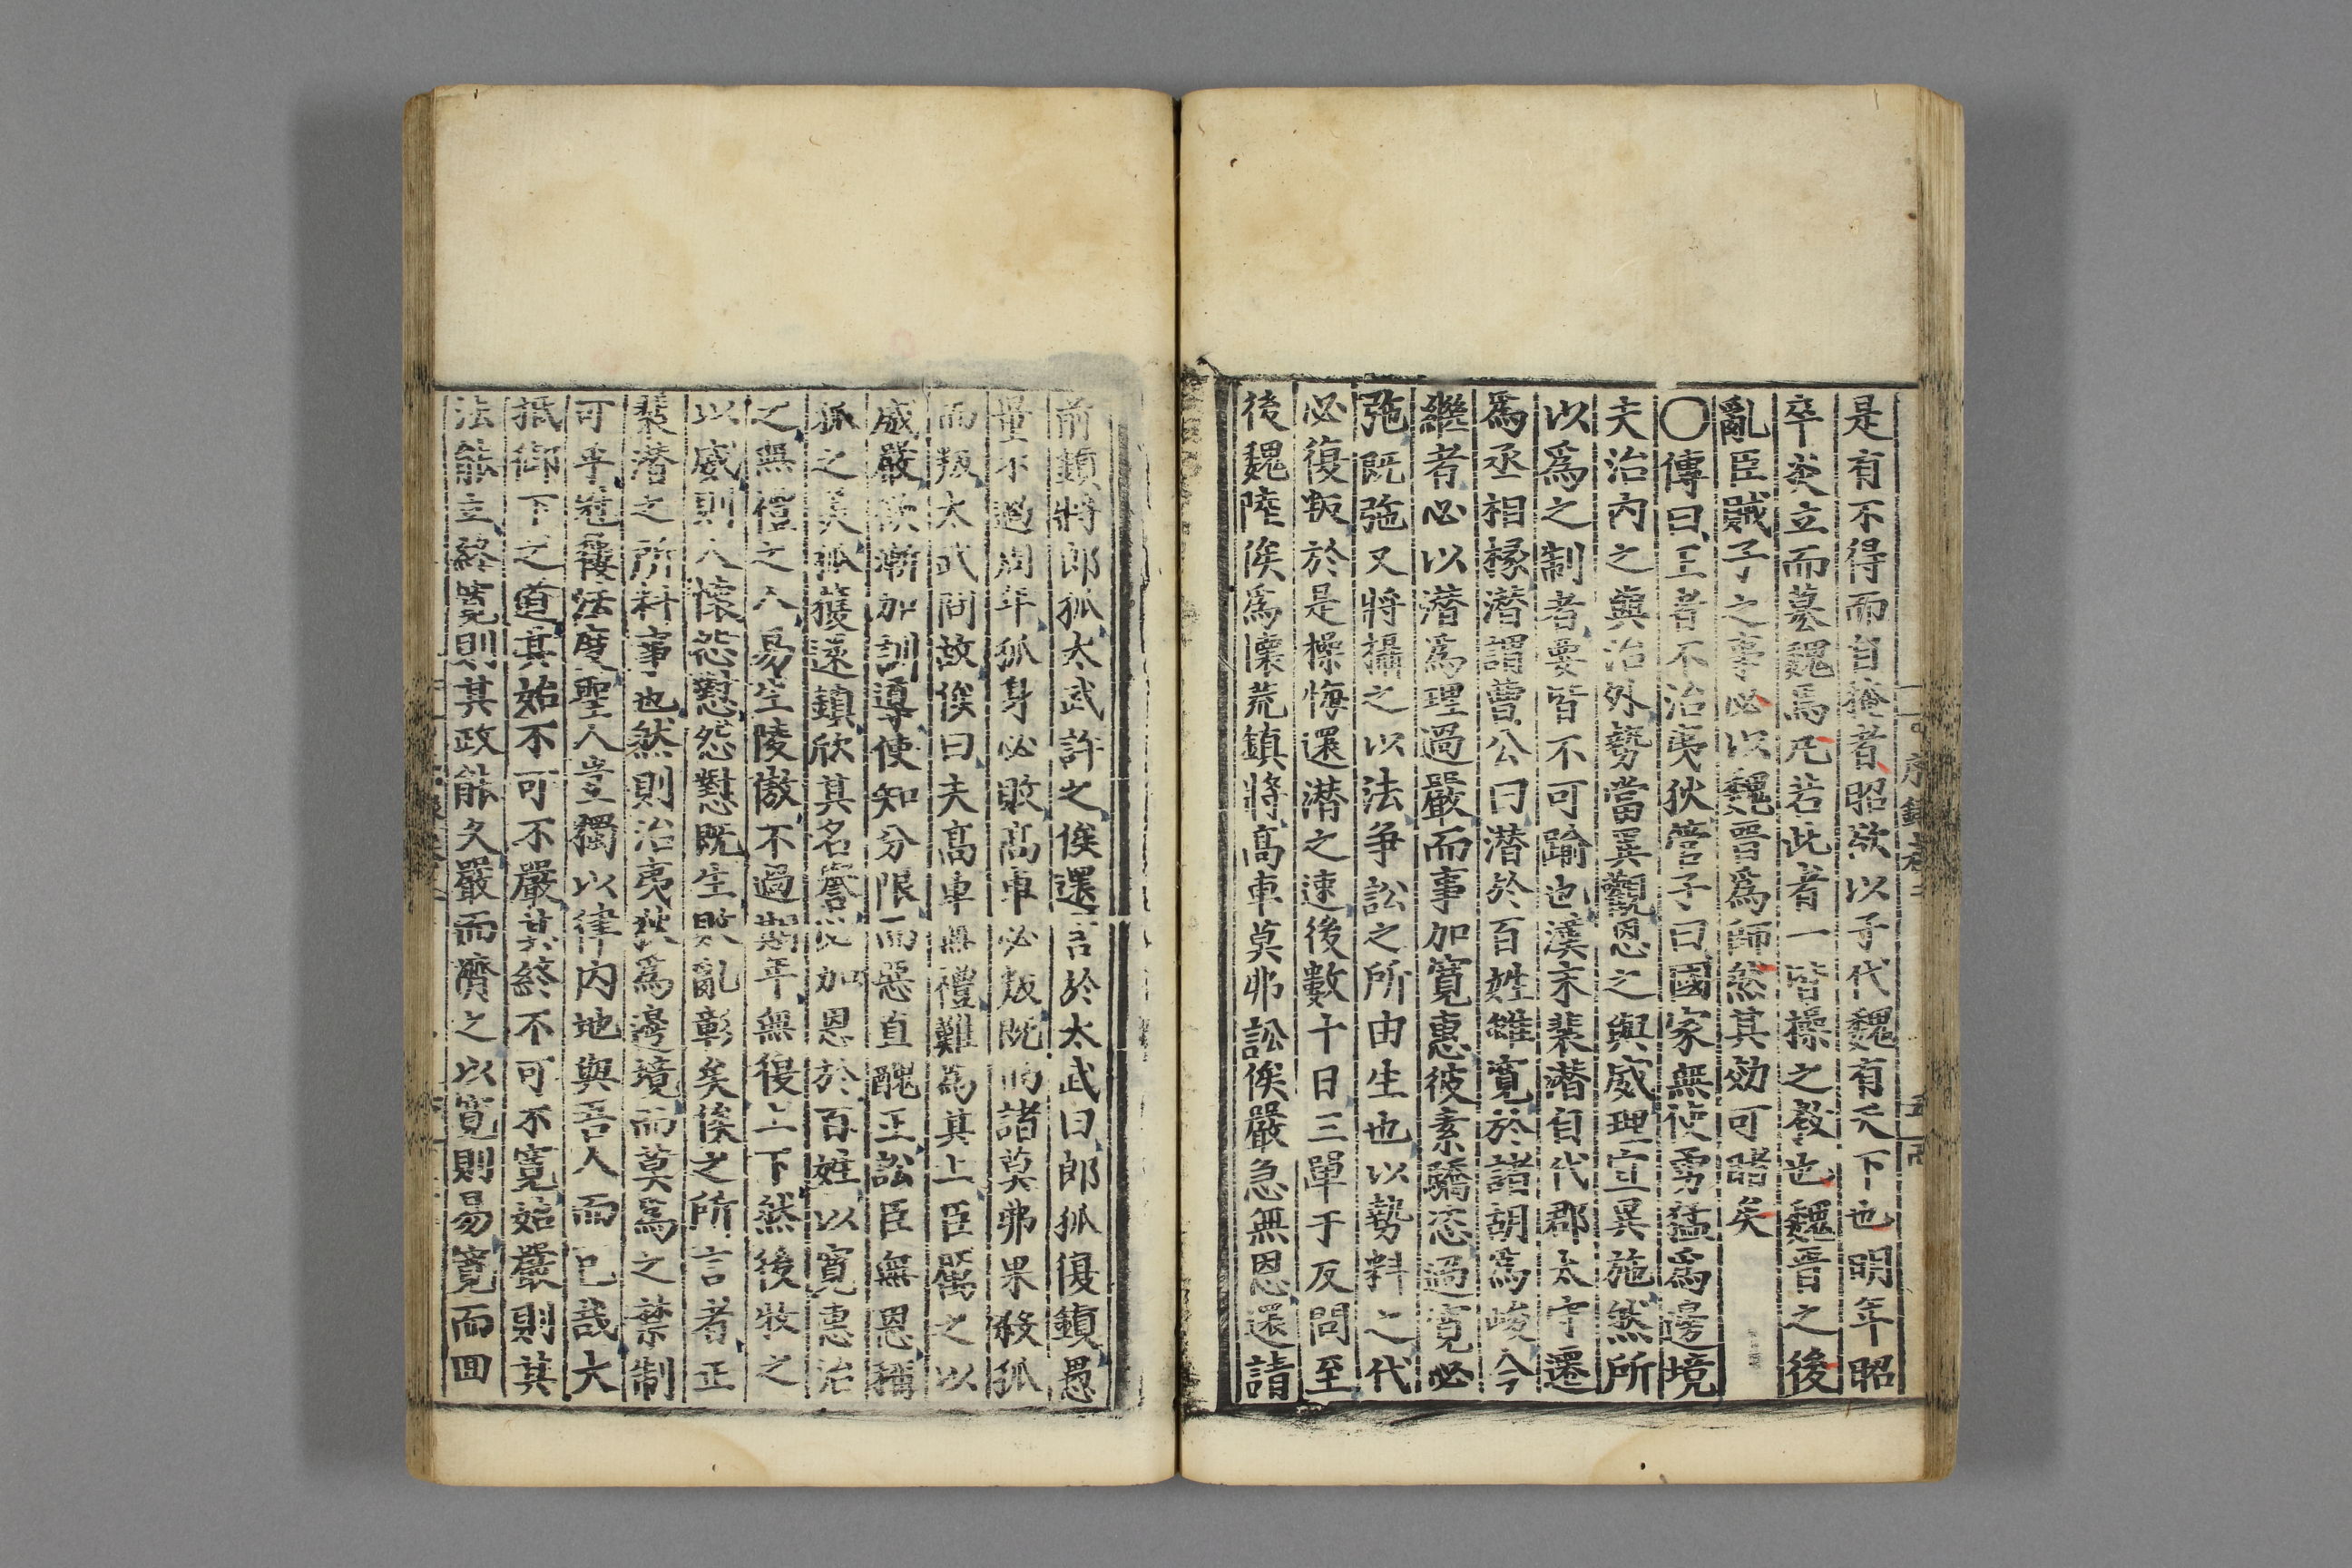 是有不得而自掩者昭欲以子代魏有天下也明年昭
卒炎立而墓魏焉凡若此者一皆操之教也魏晋之後
亂臣賊子之事必以魏晋爲師然其効可睹矣
〇傳曰王者不治夷狄管子曰國家無使勇猛爲邊境
夫治内之與治外勢當異觀恩之與威理宜異施然所
以爲之制者要皆不可踰也漢末裴潜自代郡太守遷
爲丞相掾潜謂曹公曰潜於百姓雖寛於諸胡爲峻今
繼者必以潜爲理過嚴而事加寛惠彼素驕恣過寛必
弛既弛又將攝之以法争訟之所由生也以勢料之代
必復叛於是操悔還潜之速後數十日三單于反問至
後魏陸俟爲懷荒鎮將高車莫弗訟俟嚴急無恩還請
前鎮將郎孤太武許之俟還言於太武曰郎孤復鎮愚
量不過周年孤身必敗高車必叛既而諸莫弗果殺孤
而叛太武問故俟曰夫高車無禮難爲其上臣蒞之以
威嚴欲漸加訓導使知分限而惡直醜正訟臣無恩稱
孤之美孤獲還鎮欣其名譽必加恩於百姓以寛惠治
之無禮之人易生陵傲不過期年無復上下然後收之
以威則人懷怨懟怨懟既生敗亂彰矣俟之所言者正
裴潜之所料事也然則治夷狄爲邊境而莫爲之禁制
可乎冠履法度聖人豈獨以律内地與吾人而已哉大
抵御下之道其始不可不嚴其終不可不寛始嚴則其
法能立終寛則其政能久嚴而濟之以寛則易寛而回